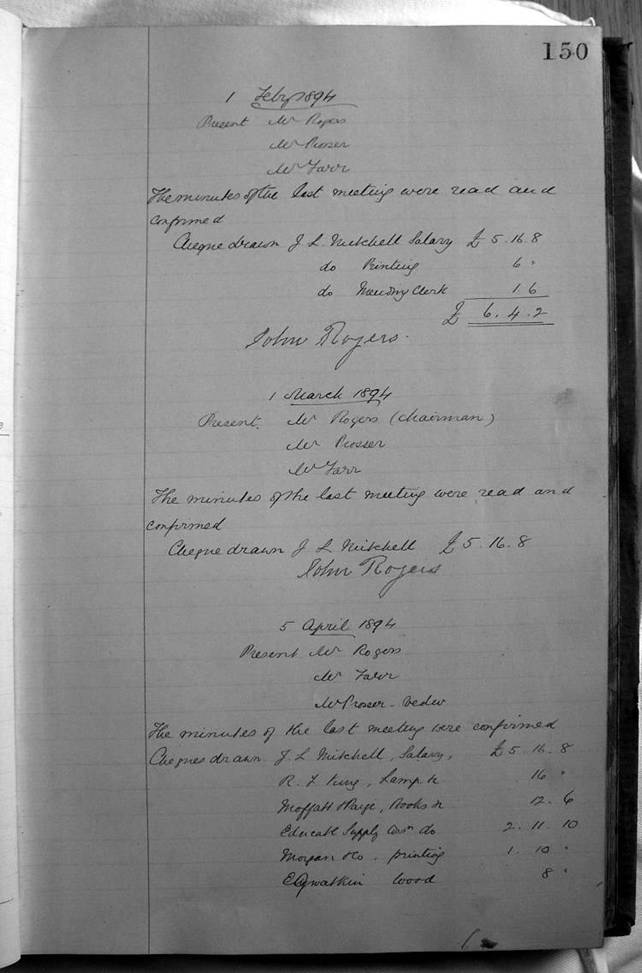 150
1 Feby 1894
Present Mr Rogers
Mr Prosser
Mr Farr
The minutes of the last meeting were read and
confirmed
Cheque drawn J L Mitchell Salary £ 5.16.8
do Printing 6 "
do Clerk 1.6
£ 6.4.2
John Rogers.
1 March 1894
Present. Mr Rogers (Chairman)
Mr Prosser
Mr Farr
The minutes of the last meeting were read and
confirmed
Cheque drawn J L Mitchell £ 5.16.8
John Rogers
5 April 1894
Present Mr Rogers
Mr Farr
Mr Prosser
The minutes of the last meeting were confirmed
Cheques drawn J. L Mitchell, Salary, £ 5.16.8
R. King, Lamp 16 "
Moffatt Paige, Books 12.6
Educatl Supply Assn do 2.11.10
Morgan & Co. printing 1.10 "
E Gwatkin Wood 8 "